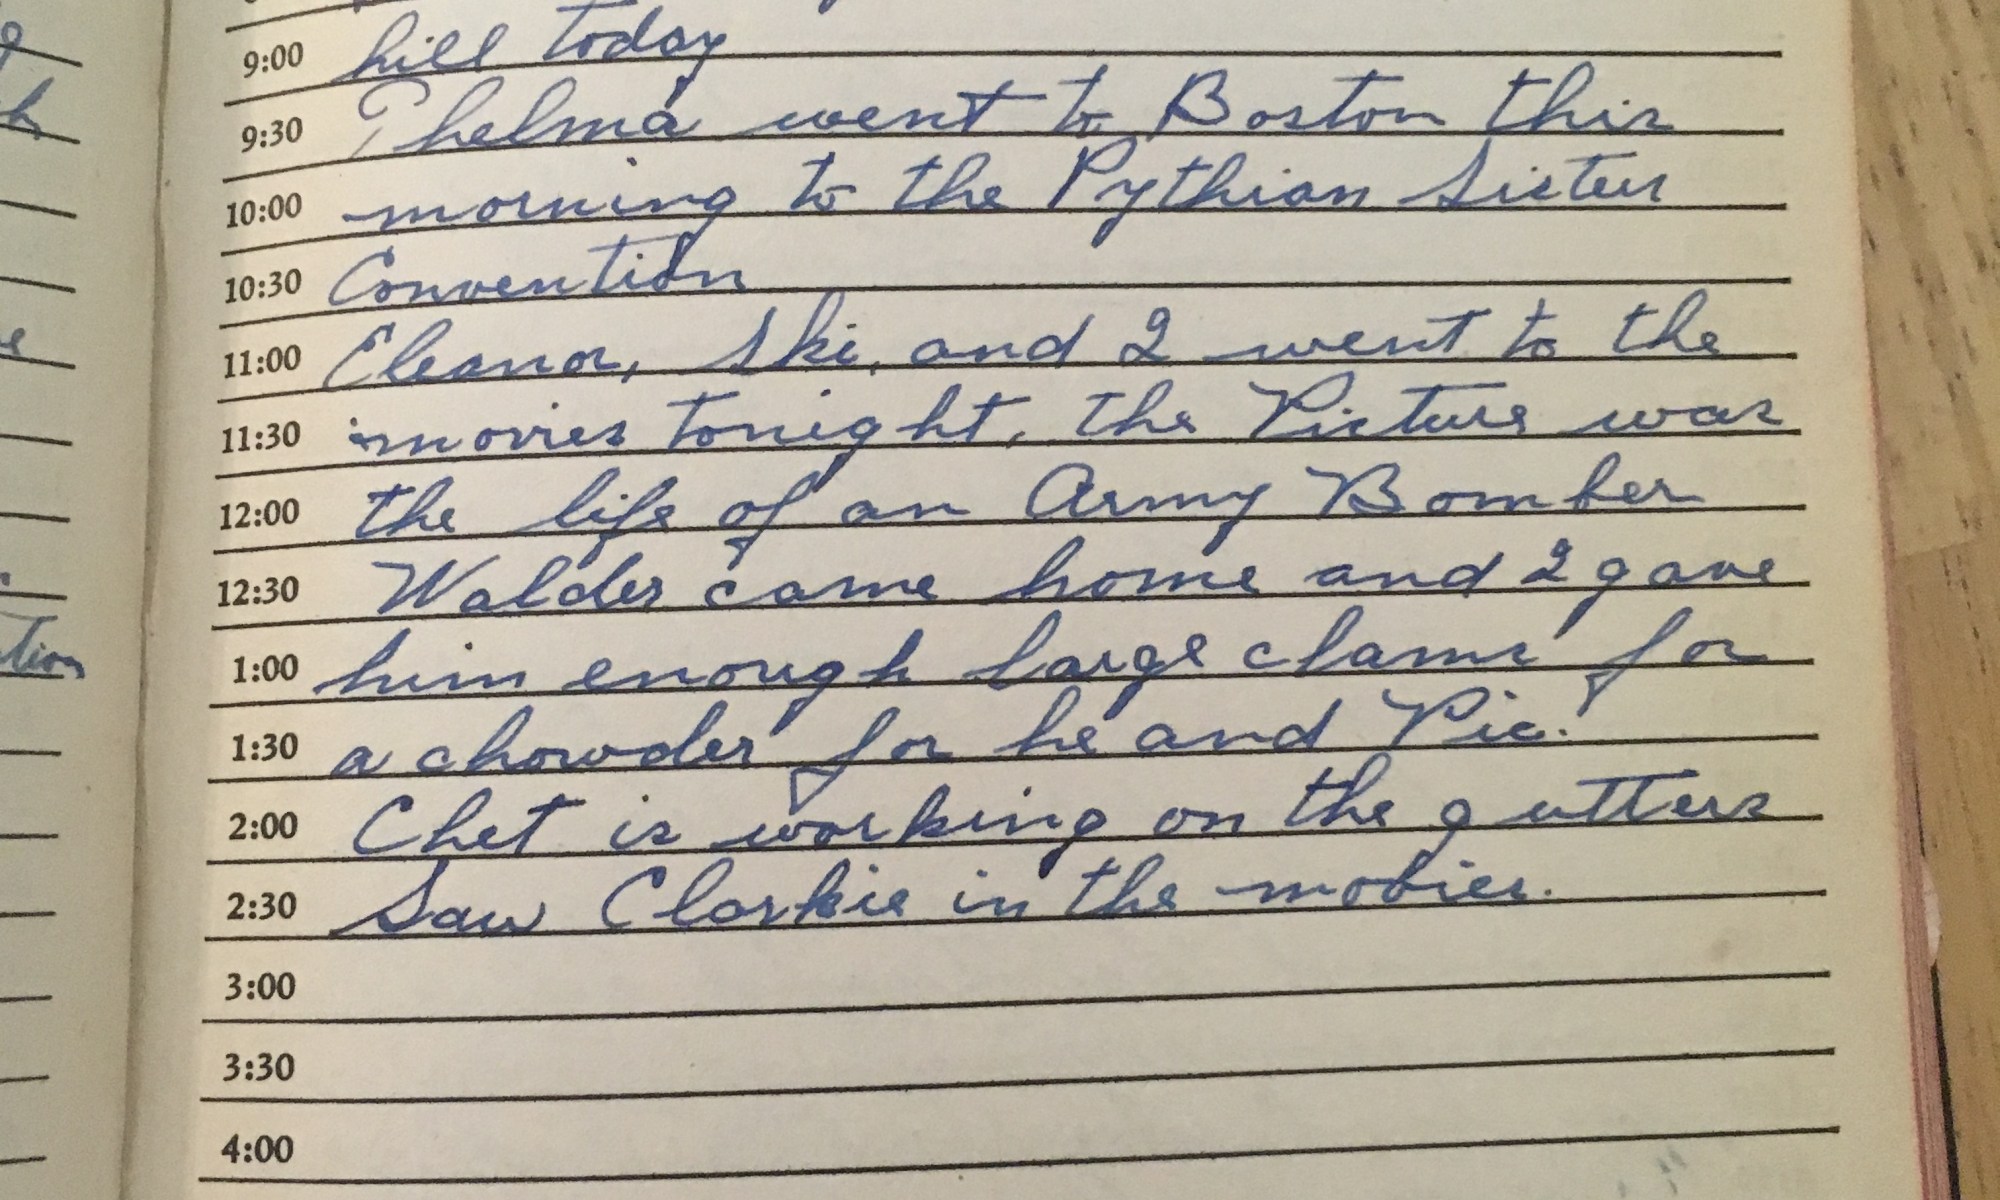 9:00 hill today
9:30 Thelma went to Boston this
10:00 morning to the Pythian Sister
10:30 Convention
11:00 Eleanor, Ski, and I went to the
11:30 movies tonight, the Picture was
12:00 the life of an Army Bomber
12:30 Walder came home and I gave
1:00 him enough large clams for
1:30 a chowder for he and Pic.
2:00 Chet is working on the gutters
2:30 Saw Clarkie in the movies.
3:00
3:30
4:00